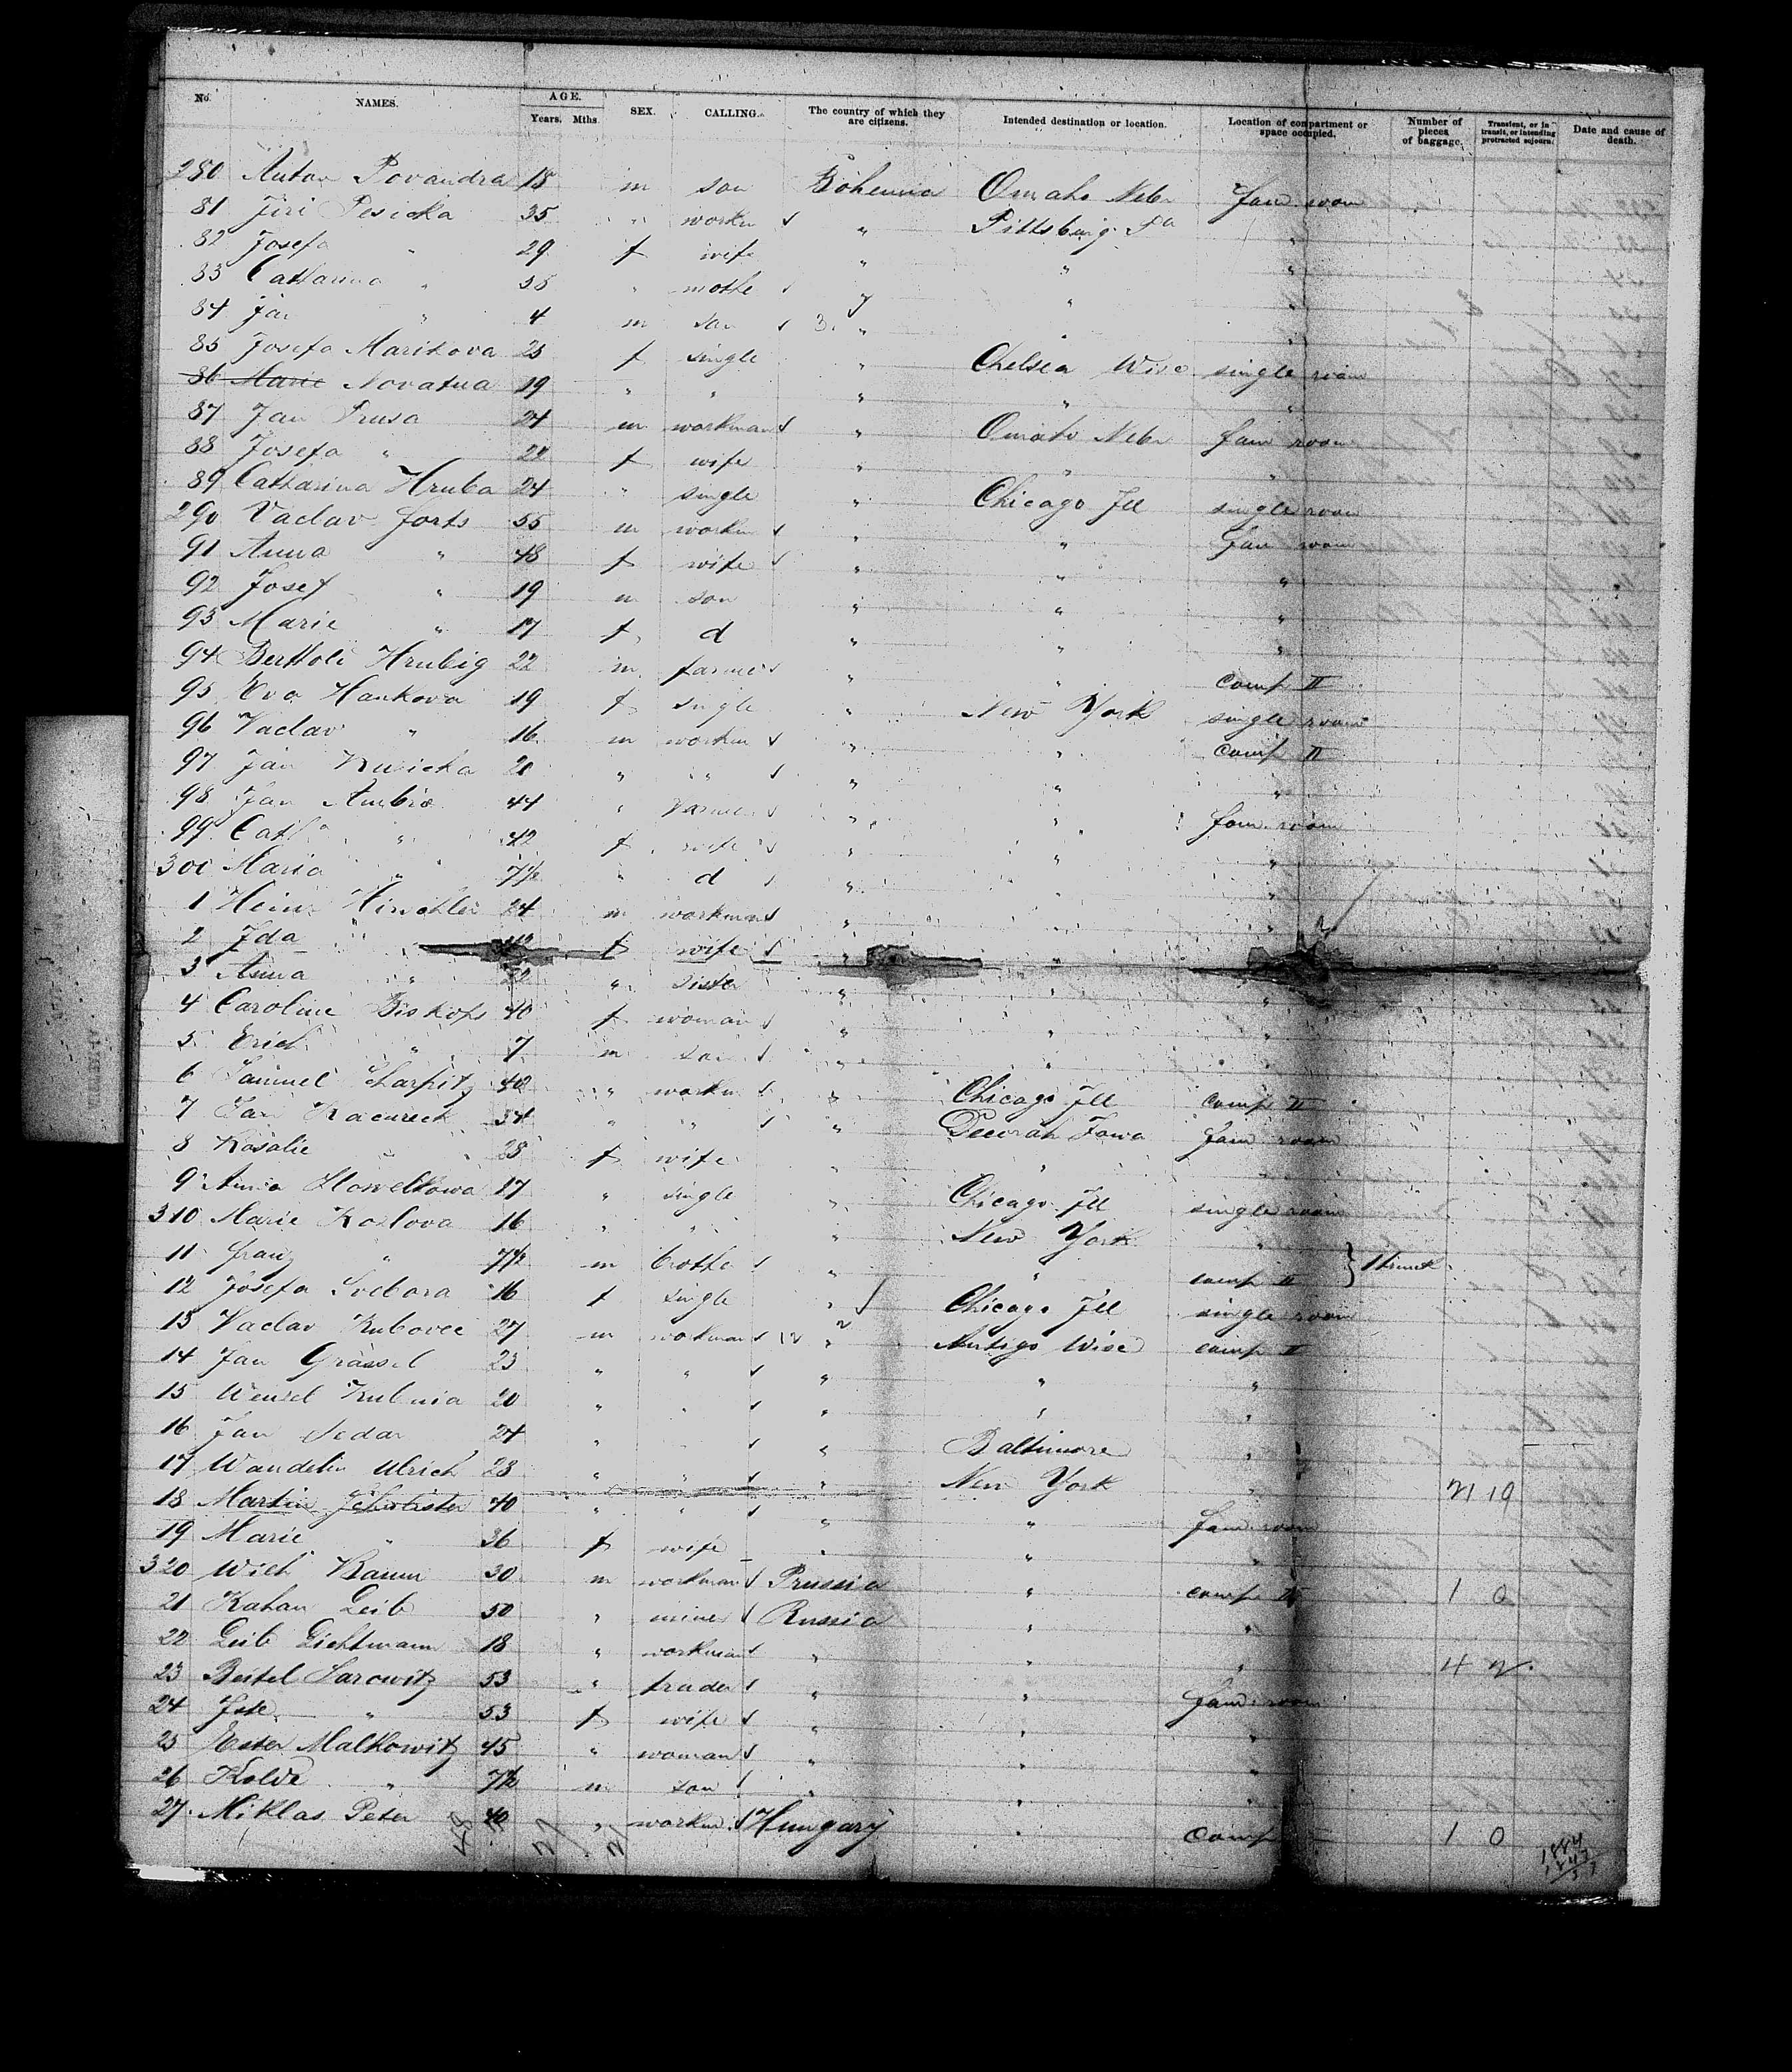 No. NAMES. AGE. Years. Mths. SEX. CALLING. The country of which they are citizens. Intended destination or location. Location of compartment or space occupied. Number of pieces of baggage. Transient, or in transit, or intending protracted sojourn. Date and cause of death.
280 Anton Povandra 18 m son Bohemia Omaha Nebr fam room
81 Jiri Pesicka 35 " workm " Pittsburg Pa "
82 Josefa " 29 f wife " " "
83 Catharina " 58 " mothe " " "
84 Jan " 4 m son " " "
85 Josefa Marikova 25 f single " Chelsea Wisc single room
86 Marie Novatna 19 " " " " "
87 Jan Prusa 24 m workman " Omaha Nebr fam room
88 Josefa " 22 f wife " " "
89 Catharina Hruba 24 " single " Chicago Ill single room
290 Vaclav Forts 55 m workm " " fam room
91 Anna " 48 f wife " " "
92 Josef " 19 m son " " "
93 Marie " 17 f d " " "
94 Berthold Hrubig 22 m farmer " " comp II
95 Eva Hankova 19 f single " New York single room
96 Vaclav " 16 m workm " " comp II
97 Jan 20 " " " " "
98 Jan 44 " farmer " " fam room
99 Cath " 42 f wife " " "
300 Maria " 7½ " d " " "
1 Heinr Hirschler 24 m workman " " "
2 Ida " f wife " "
3 Anna " 22 " sister " " "
4 Caroline Biskops 40 f woman " " "
5 Erich " 7 m son " " "
6 Samuel Scharpitz 42 " workm " Chicago Ill comp II
7 Jan Kacureck 34 " " " Decorah Iowa fam room
8 Rosalie " 28 f wife " " "
9 Anna 17 " single " Chicago Ill single room
310 Marie Kozlova 16 " " " New York "
11 Franz " 7½ m brothe " " comp II } 1 trunk
12 Josefa Svobora 16 f single " Chicago Ill single room
13 Vaclav Kubovec 27 m workman " Antigo Wisc comp II
14 Jan Grassel 23 " " " " "
15 Wenzel Kubnia 20 " " " " "
16 Jan Sedar 24 " " " Baltimore "
17 Wandelin Ulrich 28 " " " New York " 21 19
18 Martin 40 " " " " fam room
19 Marie " 36 f wife " " "
320 Wilh Baum 30 m workman Prussia " comp II 1 0
21 Kahan Leib 50 " miner Russia " "
22 Leib Lichtmann 18 " workman " " " 4 2.
23 Beitel Sarowitz 53 " trader " " fam room
24 Jste " 53 f wife " " "
25 Ester Malkowitz 45 " woman " " "
26 Kolde " 7½ m son " " "
27 Miklas Peter 40 " workm Hungary " comp II 1 0